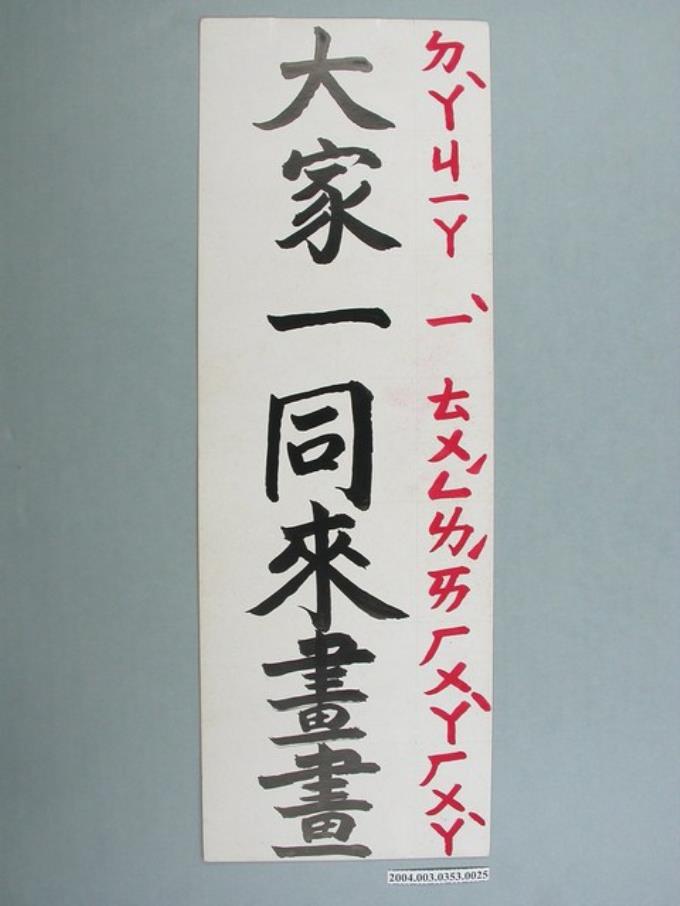 大家一同來畫畫
ㄉㄚˋㄐㄧㄚ ㄧˋ ㄊㄨㄥˊㄌㄞˊㄏㄨㄚˋㄏㄨㄚˋ
2004.003.0353.0025